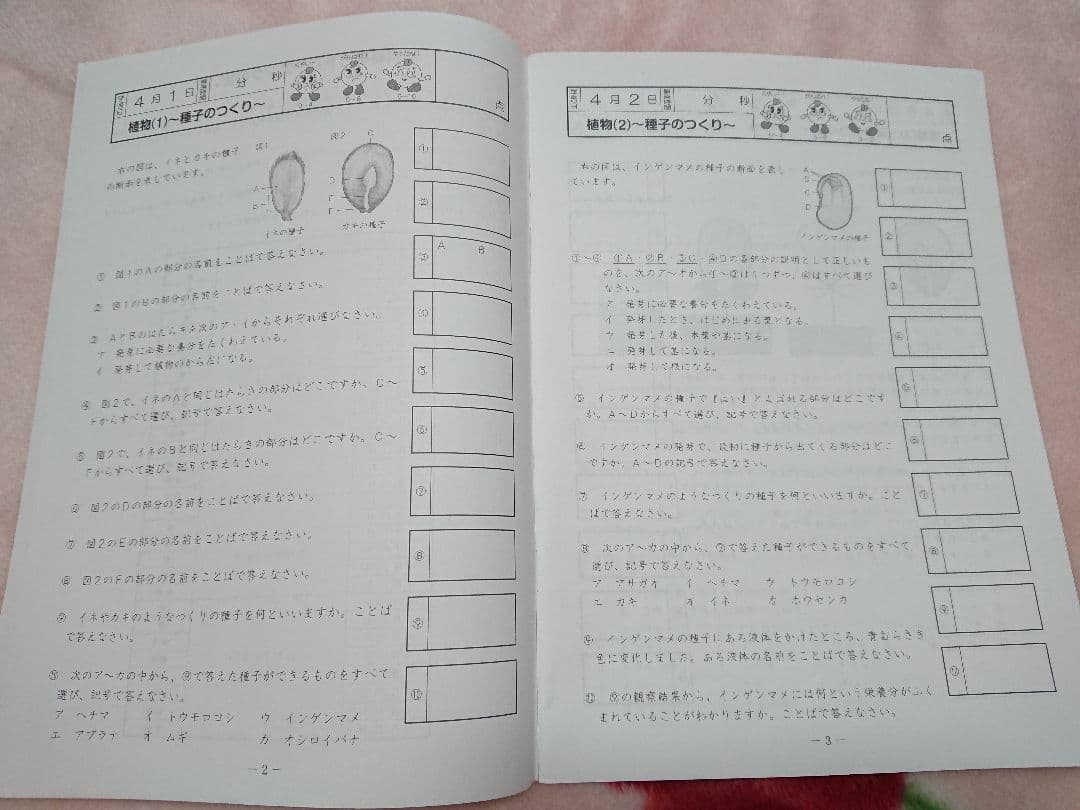 4月1日
分 秒
点
植物(1)～種子のつくり～
右の図は、イネとカキの種子
の断面を表しています。
図1
A
B
イネの種子
図2
C
D
E
F
カキの種子
① 図1のAの部分の名前をことばで答えなさい。
② 図1のBの部分の名前をことばで答えなさい。
③ AとBのはたらきを次のア・イからそれぞれ選びなさい。
ア 発芽に必要な養分をたくわえている。
イ 発芽して植物のからだになる。
④ 図2で、イネのAと同じはたらきの部分はどこですか。C～
Fからすべて選び、記号で答えなさい。
⑤ 図2で、イネのBと同じはたらきの部分はどこですか。C～
Fからすべて選び、記号で答えなさい。
⑥ 図2のDの部分の名前をことばで答えなさい。
⑦ 図2のEの部分の名前をことばで答えなさい。
⑧ 図2のFの部分の名前をことばで答えなさい。
⑨ イネやカキのようなつくりの種子を何といいますか。ことば
で答えなさい。
⑩ 次のア～カの中から、⑨で答えた種子ができるものをすべて
選び、記号で答えなさい。
ア ヘチマ イ トウモロコシ ウ インゲンマメ
エ アブラナ オ ムギ カ オシロイバナ
①
②
③ A B
④
⑤
⑥
⑦
⑧
⑨
⑩
－2－
4月2日
分 秒
点
植物(2)～種子のつくり～
右の図は、インゲンマメの種子の断面を表し
ています。
A
B
C
D
インゲンマメの種子
①～④ ①A・②B・③C・④Dの各部分の説明として正しいも
のを、次のア～オから①～③は1つずつ、④はすべて選び
なさい。
ア 発芽に必要な養分をたくわえている。
イ 発芽したとき、はじめに出る葉となる。
ウ 発芽した後、本葉や茎になる。
エ 発芽して茎になる。
オ 発芽して根になる。
⑤ インゲンマメの種子で『はい』とよばれる部分はどこです
か。A～Dからすべて選び、記号で答えなさい。
⑥ インゲンマメの発芽で、最初に種子から出てくる部分はどこ
ですか。A～Dの記号で答えなさい。
⑦ インゲンマメのようなつくりの種子を何といいますか。こと
ばで答えなさい。
⑧ 次のア～カの中から、⑦で答えた種子ができるものをすべて
選び、記号で答えなさい。
ア アサガオ イ ヘチマ ウ トウモロコシ
エ カキ オ イネ カ ホウセンカ
⑨ インゲンマメの種子にある液体をかけたところ、青むらさき
色に変化しました。ある液体の名前をことばで答えなさい。
⑩ ⑨の観察結果から、インゲンマメには何という栄養分がふく
まれていることがわかりますか。ことばで答えなさい。
①
②
③
④
⑤
⑥
⑦
⑧
⑨
⑩
－3－